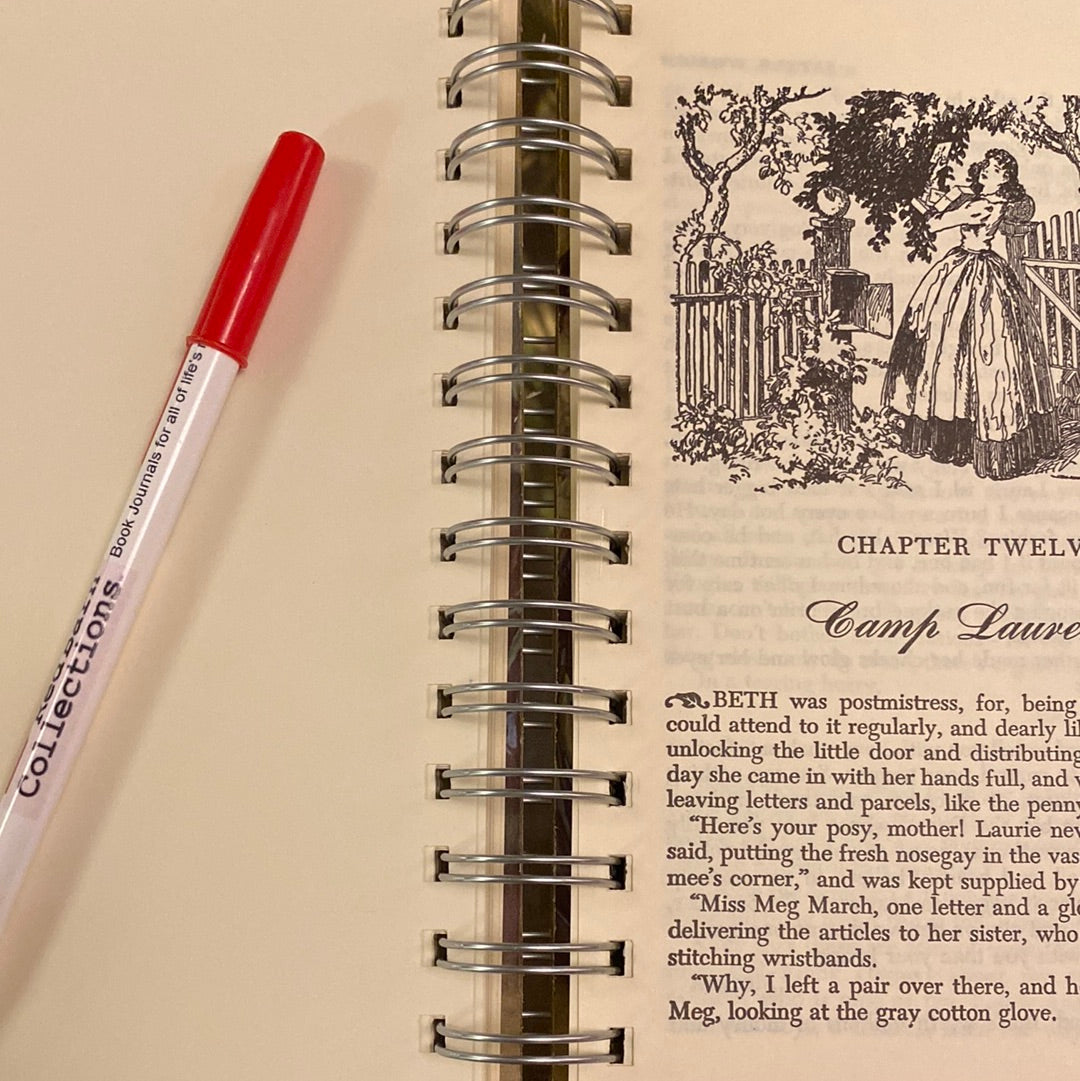 Book Journals for all of life's
Collections
CHAPTER TWELV
Camp Laure
BETH was postmistress, for, being
could attend to it regularly, and dearly li
unlocking the little door and distributing
day she came in with her hands full, and
leaving letters and parcels, like the penny
“Here's your posy, mother! Laurie nev
said, putting the fresh nosegay in the vas
mee's corner,” and was kept supplied by
“Miss Meg March, one letter and a gl
delivering the articles to her sister, who
stitching wristbands.
“Why, I left a pair over there, and h
Meg, looking at the gray cotton glove.